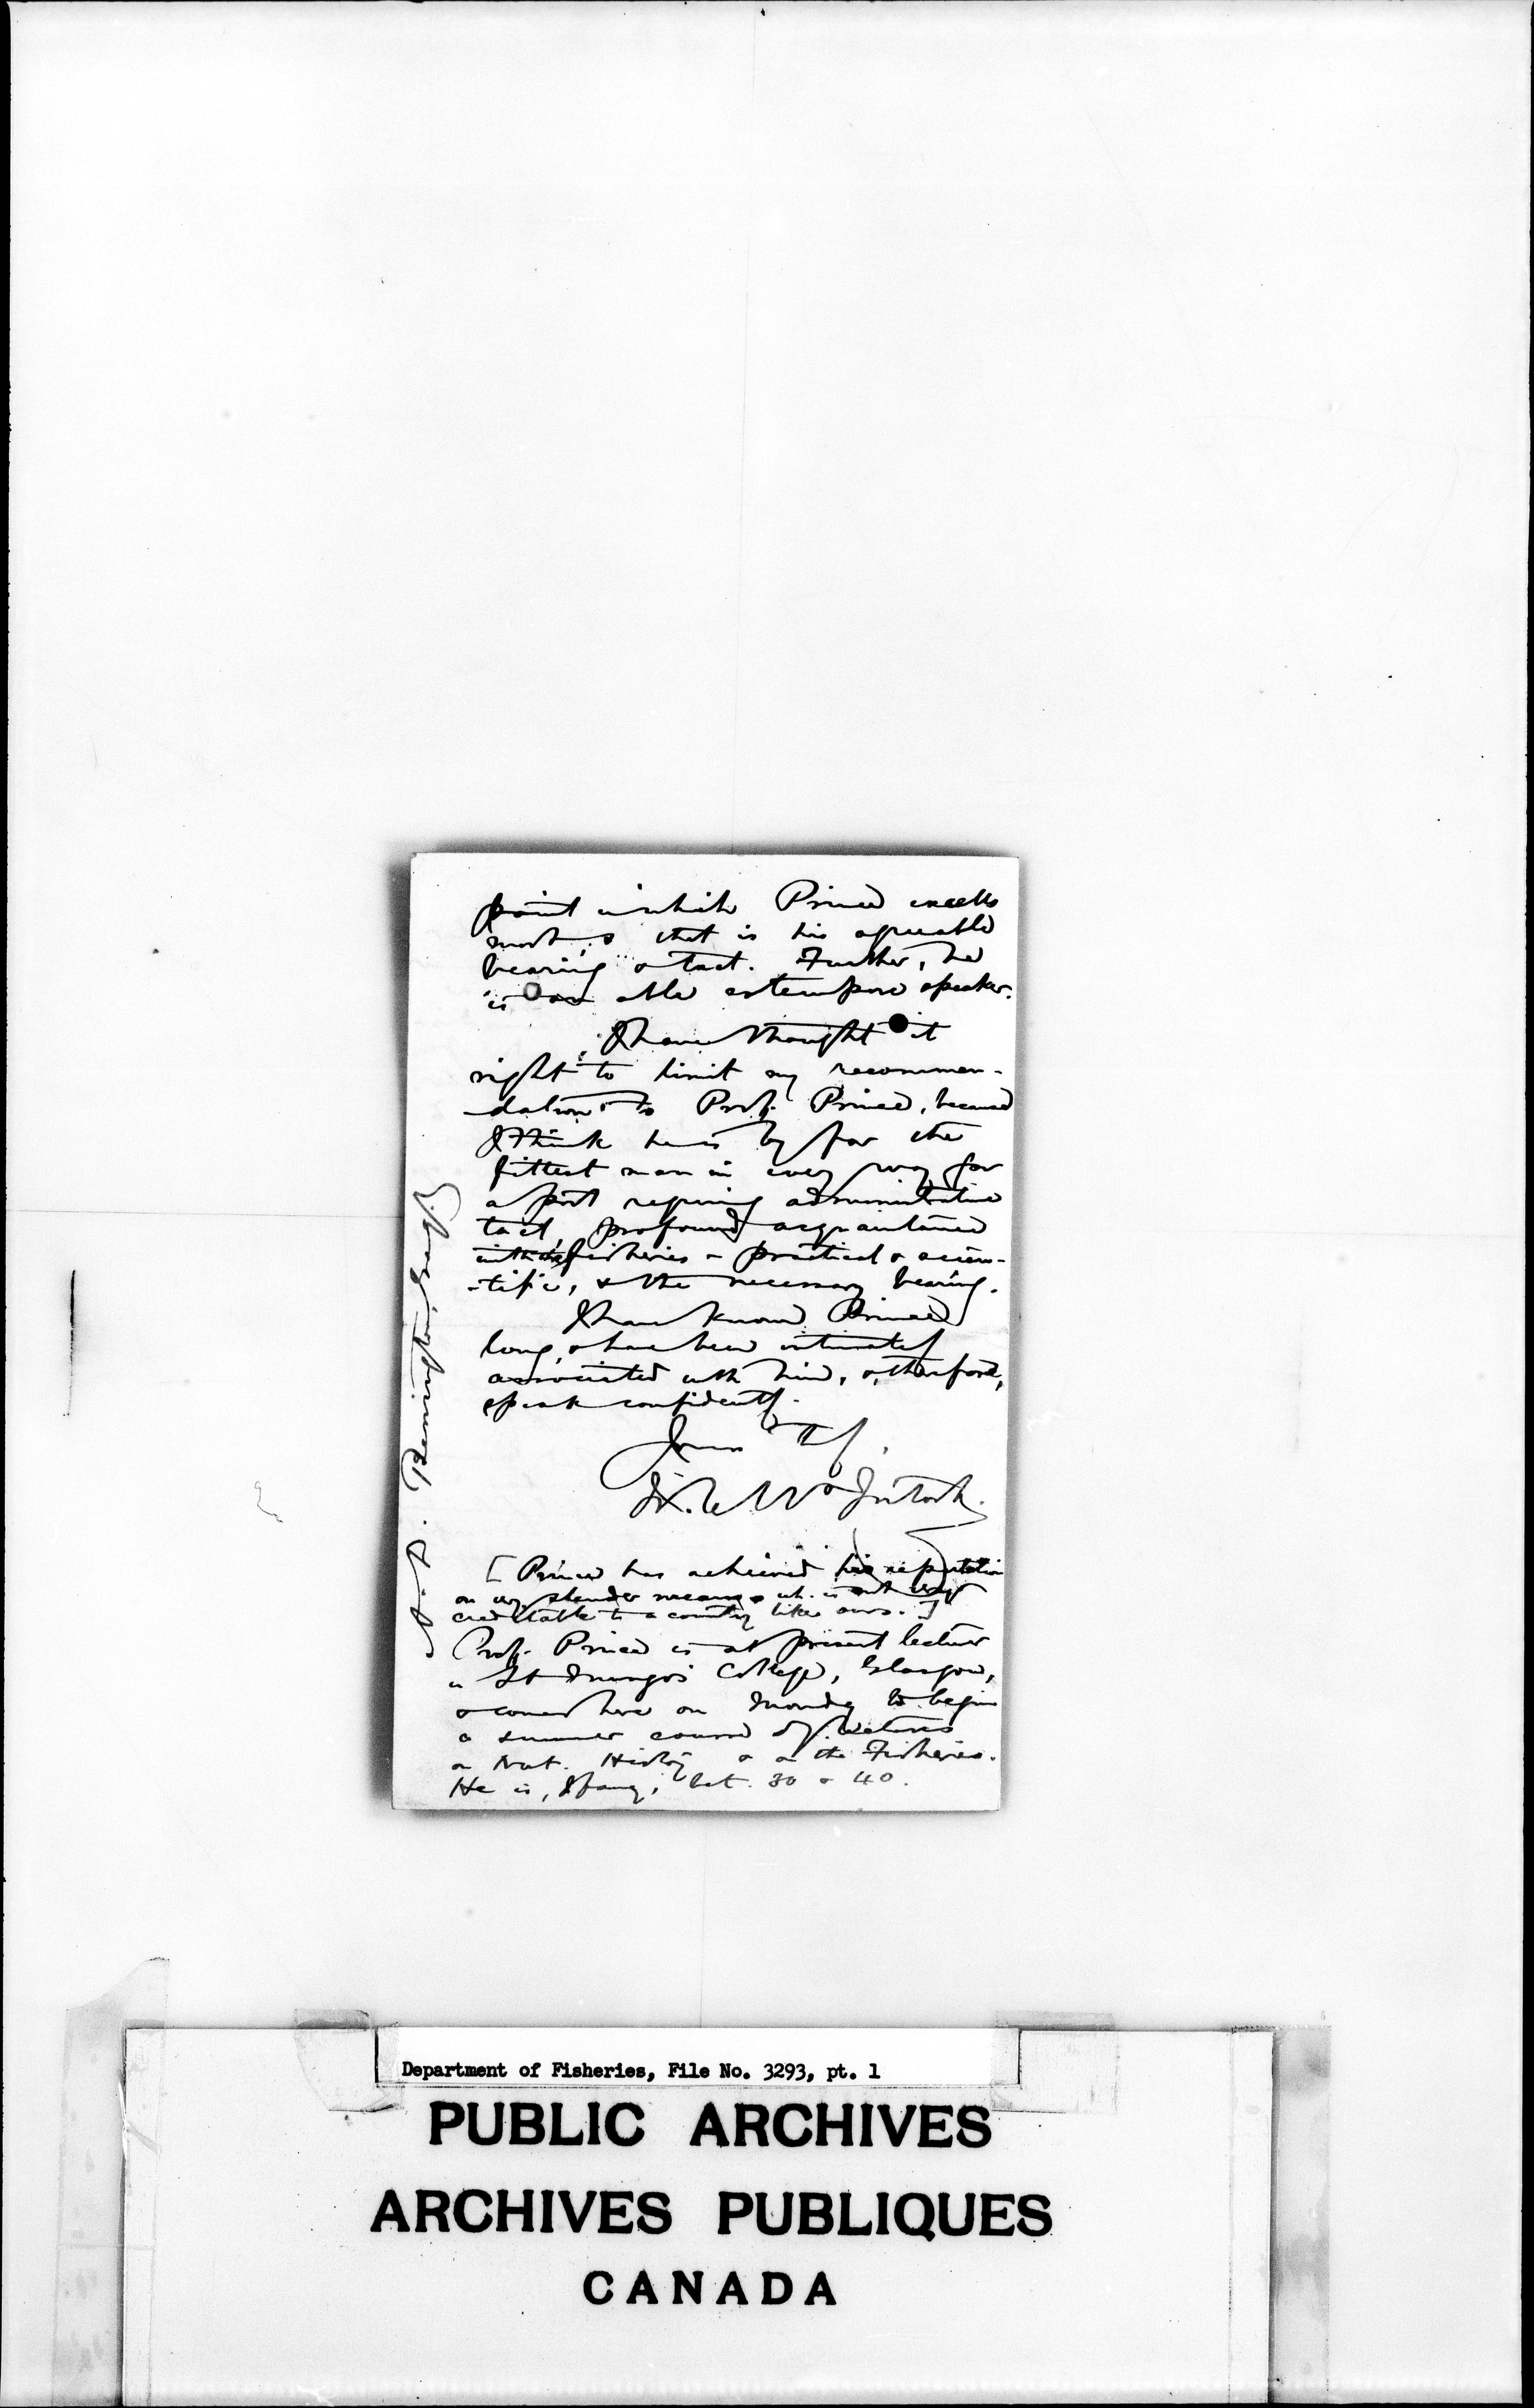 point in which Prince excells
most, & that is his agreeable
bearing & tact. Further, he
is an able extempore speaker.
I have thought it
right to limit my recommen-
-dation to Prof. Prince, because
I think he is by far the
fittest man in every way for
a post requiring administrative
tact, profound acquaintance
with the fisheries - practical & scien-
-tific, & the necessary bearing.
I have known Prince
long, & have been intimately
associated with him, & therefore,
speak confidently.
Yours
W. C. McIntosh.
[Prince has achieved his reputation
on very slender means, wh. is not very
creditable to a country like ours.]
Prof. Prince is at present lecturer
in St Mungo's College, Glasgow,
& comes here on Monday to begin
a summer course of lectures
on Nat. History & on the Fisheries.
He is, I fancy, bet. 30 & 40.
Department of Fisheries, File No. 3293, pt. 1
PUBLIC ARCHIVES
ARCHIVES PUBLIQUES
CANADA